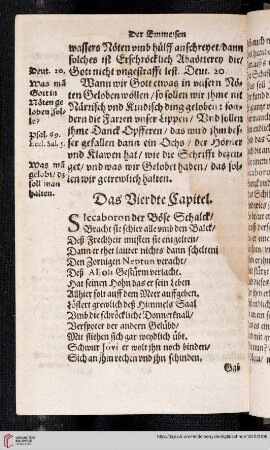 Der Emmeisen
wassers Nöten vmb hülff anschreyet/dann
solches ist Erschröcklich Abgötterey die/
Gott nicht vngestrafft lest. Deut. 20.
Wann wir Gott etwas in vnsern Nö-
ten Geloben wöllen/so sollen wir jhme nit
Närrisch vnd Kindisch ding geloben: son-
dern die Farren vnser Lippen/ Vnd sollen
jhme Danck Opfferen/ das wird jhm bes-
ser gefallen dann ein Ochs/ der Hörner
vnd Klawen hat/ wie die Schrifft bezeu-
get/ vnd was wir Gelobt haben/ das sol-
len wir getrewlich halten.
Deut. 20.
Was mã
Gott in
Nöten ge
loben sol-
le?
Psal. 69.
Eccl. Sal. 5.
Was mã
gelobt/ dz
soll man
halten.
Das Vierdte Capitel.
Siccaboron der Böse Schalck/
Bracht sie schier alle vmb den Balck/
Deß Frechheit musten sie entgelten/
Dann er thet lauter nichts dann schelten
Den Zornigen Neptun veracht/
Deß AEoli Gestürm verlacht.
Hat seinen Hohn das er sein Leben
Allhier solt auff dem Meer auffgeben.
Löstert grewlich deß Himmels Saal
Vmb die schröckliche Donnerknall/
Verspotet der andern Gelübd/
Mit stichen sich gar weydlich übt.
Schwur Jovi er wolt jhn noch binden/
Sich an jhm rechen vnd jhn schinden.